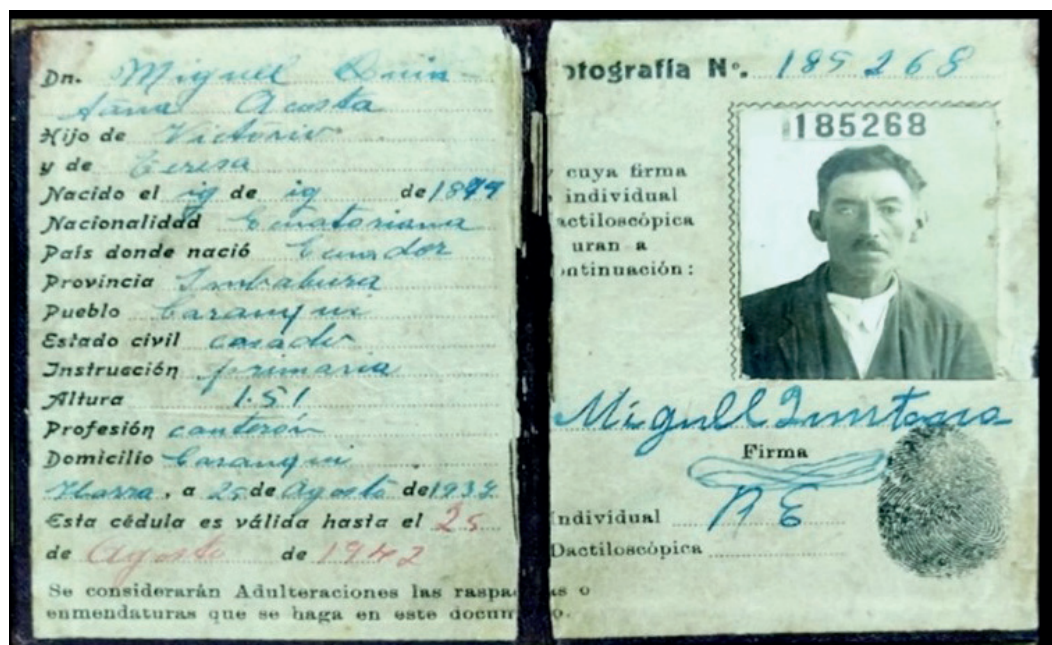 Dn. Miguel Quin
tana Acosta
Hijo de Victorio
y de Teresa
Nacido el ig de ig de 1899
Nacionalidad Ecuatoriana
País donde nació Ecuador
Provincia Imbabura
Pueblo Caranqui
Estado civil casado
Instrucción primaria
Altura 1.51
Profesión
Domicilio Caranqui
Ibarra, a 25 de Agosto de 1934
Esta cédula es válida hasta el 25
de Agosto de 1942
Se considerarán Adulteraciones las raspa as o
enmendaturas que se haga en este docum o.
otografía Nº. 185268
185268
cuya firma
individual
actiloscópica
uran a
ontinuación:
Miguel
Firma
ndividual
Dactiloscópica